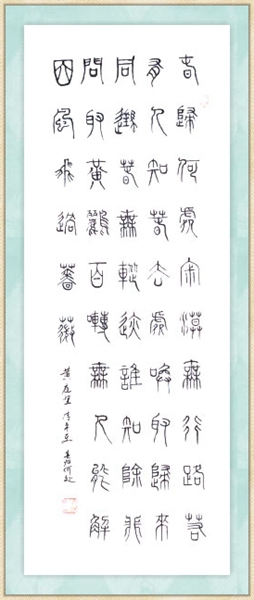 春歸何處寂寞無行路若
有人知春去處喚取歸來
同住春無蹤迹誰知除非
問取黃鸝百囀無人能解
因風飛過薔薇
黄庭堅清平乐